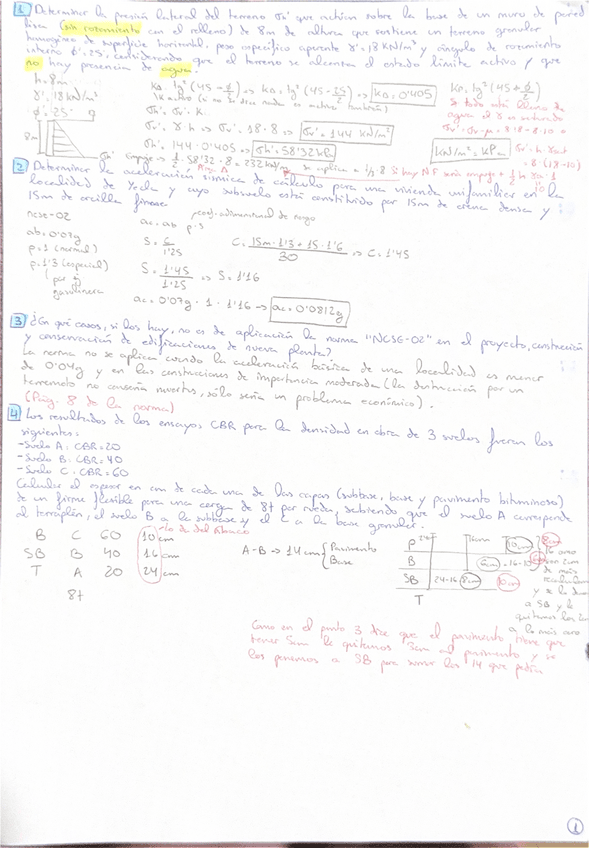 1 Determinar la presión lateral del terreno σh' que actúan sobre la base de un muro de pared
lisa (sin rozamiento con el relleno) de 8m de altura que sostiene un terreno granular
homogéneo de superficie horizontal, peso específico aparente γ'=18 kN/m³ y ángulo de rozamiento
interno ϕ'=25, considerando que el terreno se alcanza el estado límite activo y que
no hay presencia de agua.
h = 8m
γ' = 18 kN/m³
ϕ' = 25
8m
σh'
Ka = tg² (45 - ϕ/2) => Ka = tg² (45 - 25/2) => Ka = 0'405
Kp = tg² (45 + ϕ/2)
σh' = σv' · K
σv' = γ · h -> σv' = 18 · 8 -> σv' = 144 kN/m²
σh' = 144 · 0'405 => σh' = 58'32 kPa
kN/m² = kPa
Empuje => 1/2 · 58'32 · 8 = 232 kN/m
2 Determinar la aceleración sísmica de cálculo para una vivienda unifamiliar en la
localidad de Yecla y cuyo subsuelo está constituido por 15m de arena densa y
15m de arcilla firme.
NCSE-02
ab = 0'07g
ρ = 1 (normal)
ρ = 1'3 (especial)
(por ej
gasolinera
coef. adimensional de riesgo
ac = ab · ρ · S
S = C/1'25
C = 15m · 1'3 + 15 · 1'6 / 30 => C = 1'45
S = 1'45/1'25 => S = 1'16
ac = 0'07g · 1 · 1'16 -> ac = 0'0812g
3 ¿En qué casos, si los hay, no es de aplicación la norma "NCSE-02" en el proyecto, construcción
y conservación de edificaciones de nueva planta?
La norma no se aplica cuando la aceleración básica de una localidad es menor
de 0'04g y en las construcciones de importancia moderada (la destrucción por un
terremoto no causaría muertos, sólo sería un problema económico).
(Pág. 8 de la norma)
4 Los resultados de los ensayos CBR para la densidad en obra de 3 suelos fueron los
siguientes:
- Suelo A: CBR = 20
- Suelo B: CBR = 40
- Suelo C: CBR = 60
Calcular el espesor en cm de cada una de las capas (subbase, base y pavimento bituminoso)
de un firme flexible para una carga de 8t por rueda, sabiendo que el suelo A corresponde
al terraplén, el suelo B a la subbase y el C a la base granular.
B C 60 10 cm
SB B 40 16 cm
T A 20 24 cm
8t
lo da del Ábaco
A-B -> 14 cm { Pavimento
Base
P
B 6cm = 16-10
SB 24-16 8cm 10cm
T
Como en el punto 3 dice que el pavimento tiene que
tener 5cm le quitamos 3cm al pavimento y se
los ponemos a SB para sumar los 14 que pedían
1